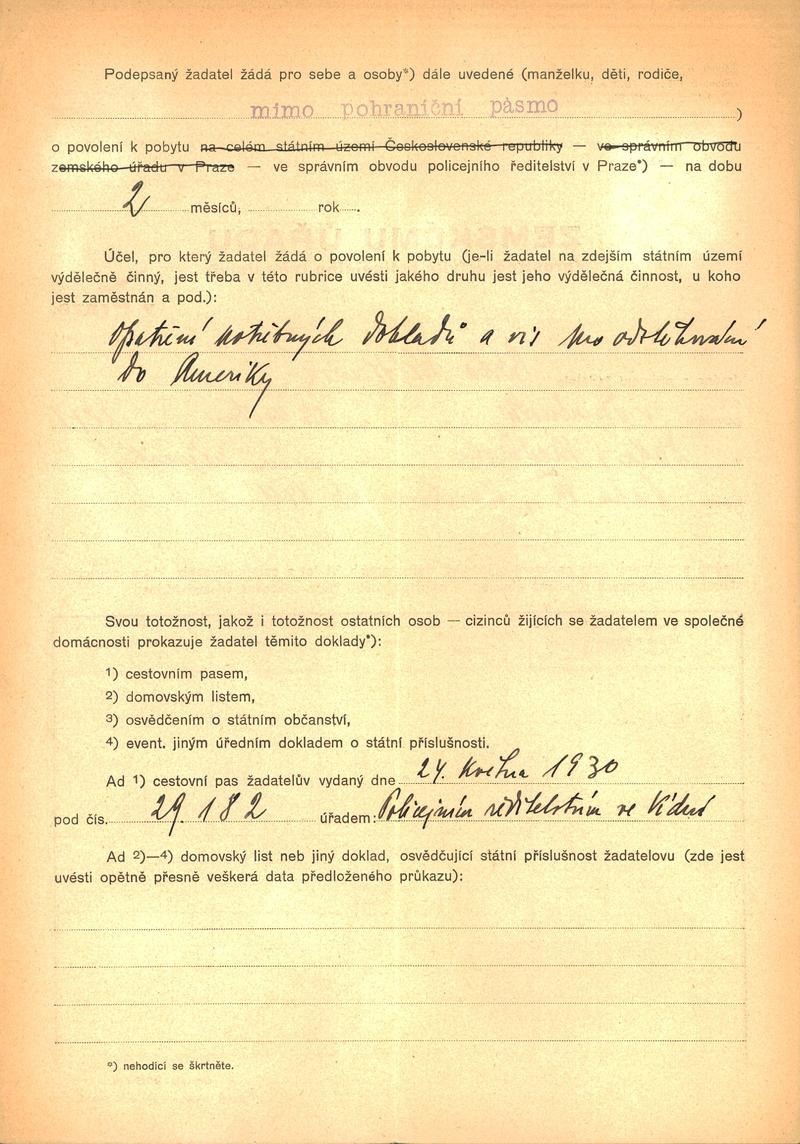 Podepsaný žadatel žádá pro sebe a osoby*) dále uvedené (manželku, děti, rodiče,
mimo pohraniční pásmo )
o povolení k pobytu na celém státním území Československé republiky — ve správním obvodu
zemského úřadu v Praze — ve správním obvodu policejního ředitelství v Praze*) — na dobu
2 měsíců, rok .
Účel, pro který žadatel žádá o povolení k pobytu (je-li žadatel na zdejším státním území
výdělečně činný, jest třeba v této rubrice uvésti jakého druhu jest jeho výdělečná činnost, u koho
jest zaměstnán a pod.):
Opatření potřebných dokladů a vis pro odstěhování
do Ameriky
Svou totožnost, jakož i totožnost ostatních osob — cizinců žijících se žadatelem ve společné
domácnosti prokazuje žadatel těmito doklady*):
1) cestovním pasem,
2) domovským listem,
3) osvědčením o státním občanství,
4) event. jiným úředním dokladem o státní příslušnosti.
Ad 1) cestovní pas žadatelův vydaný dne 24. května 1930
pod čís. 29.182 úřadem: Policejním ředitelstvím ve Vídni
Ad 2)—4) domovský list neb jiný doklad, osvědčující státní příslušnost žadatelovu (zde jest
uvésti opětně přesně veškerá data předloženého průkazu):
*) nehodící se škrtněte.